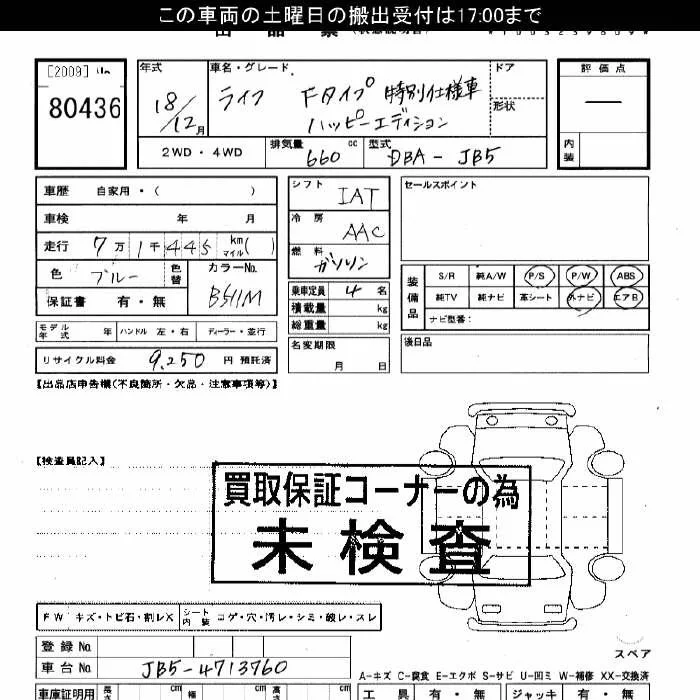 この車両の土曜日の搬出受付は17:00まで
[2009]
80436
年式
18/12月
車名・グレード
ライフ Fタイプ 特別仕様車
ハッピーエディション
ドア
形状
評価点
―
内装
2WD・4WD
排気量 660 cc
型式 DBA-JB5
車歴 自家用・( )
車検 年 月
走行 7万1千445 km マイル( )
色 ブルー
色替
カラーNo. B511M
保証書 有・無
モデル年式 年
ハンドル 左・右
ディーラー・並行
リサイクル料金 9,250 円 預託済
シフト IAT
冷房 AAC
燃料 ガソリン
乗車定員 4 名
積載量 kg
総重量 kg
名変期限
月 日
セールスポイント
装備品
S/R 純A/W P/S P/W ABS
純TV 純ナビ 革シート 外ナビ エアB
ナビ型番:
後日品
【出品店申告欄(不良箇所・欠品・注意事項等)】
【検査員記入】
買取保証コーナーの為
未検査
FW キズ・トビ石・割レX
シート内装 コゲ・穴・汚レ・シミ・破レ・スレ
スペア
登録No.
車台No. JB5-4713760
A-キズ C-腐食 E-エクボ S-サビ U-凹ミ W-補修 XX-交換済
車庫証明用 長さ cm 幅 cm 高さ cm
工具 有・無 ジャッキ 有・無